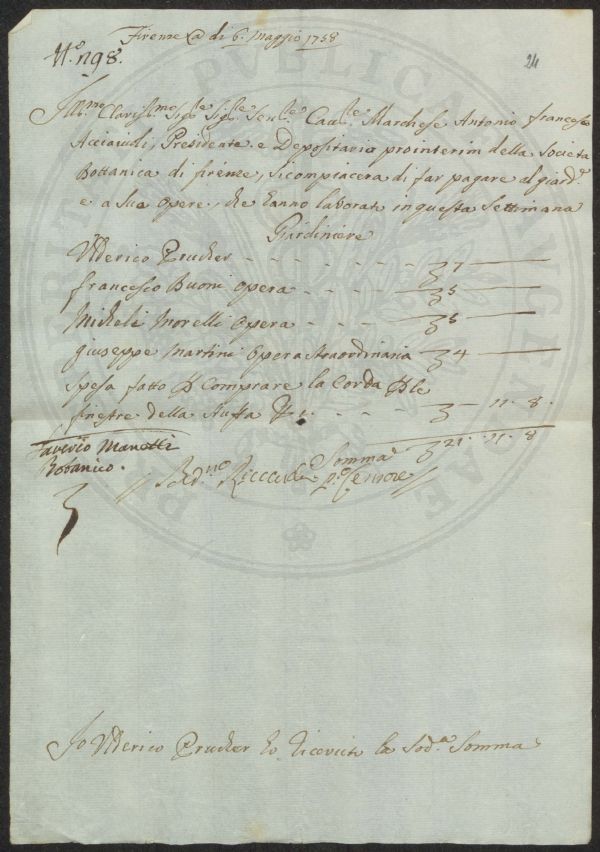 Firenze @ di 6. Maggio 1758
N.º 198.
24
Ill.mo Clariss.mo Sig.re Sig.re Sen.re Cav.re Marchese Antonio francesco
Acciaiuli, Presidente e Depositario prointerim della Società
Bottanica di firenze, Si compiacerà di far pagare al giard.e
e a Sua opere, che hanno laborate in questa Settimana
Giardiniere
Ulderico Prucher - - - - - - 7 —
francesco Buoni opera - - - 5 —
Michele Morelli opera - - - 5 —
giuseppe Martini opera straordinaria 4 —
Spesa fatto p Comprare la Corda p le
finestre della Stuffa - - - — 11. 8.
Somma 21. 11. 8
Saverio Manetti
Botanico.
Pº Censore
Io Ulderico Prucher ho ricevuto la Sod.a Somma